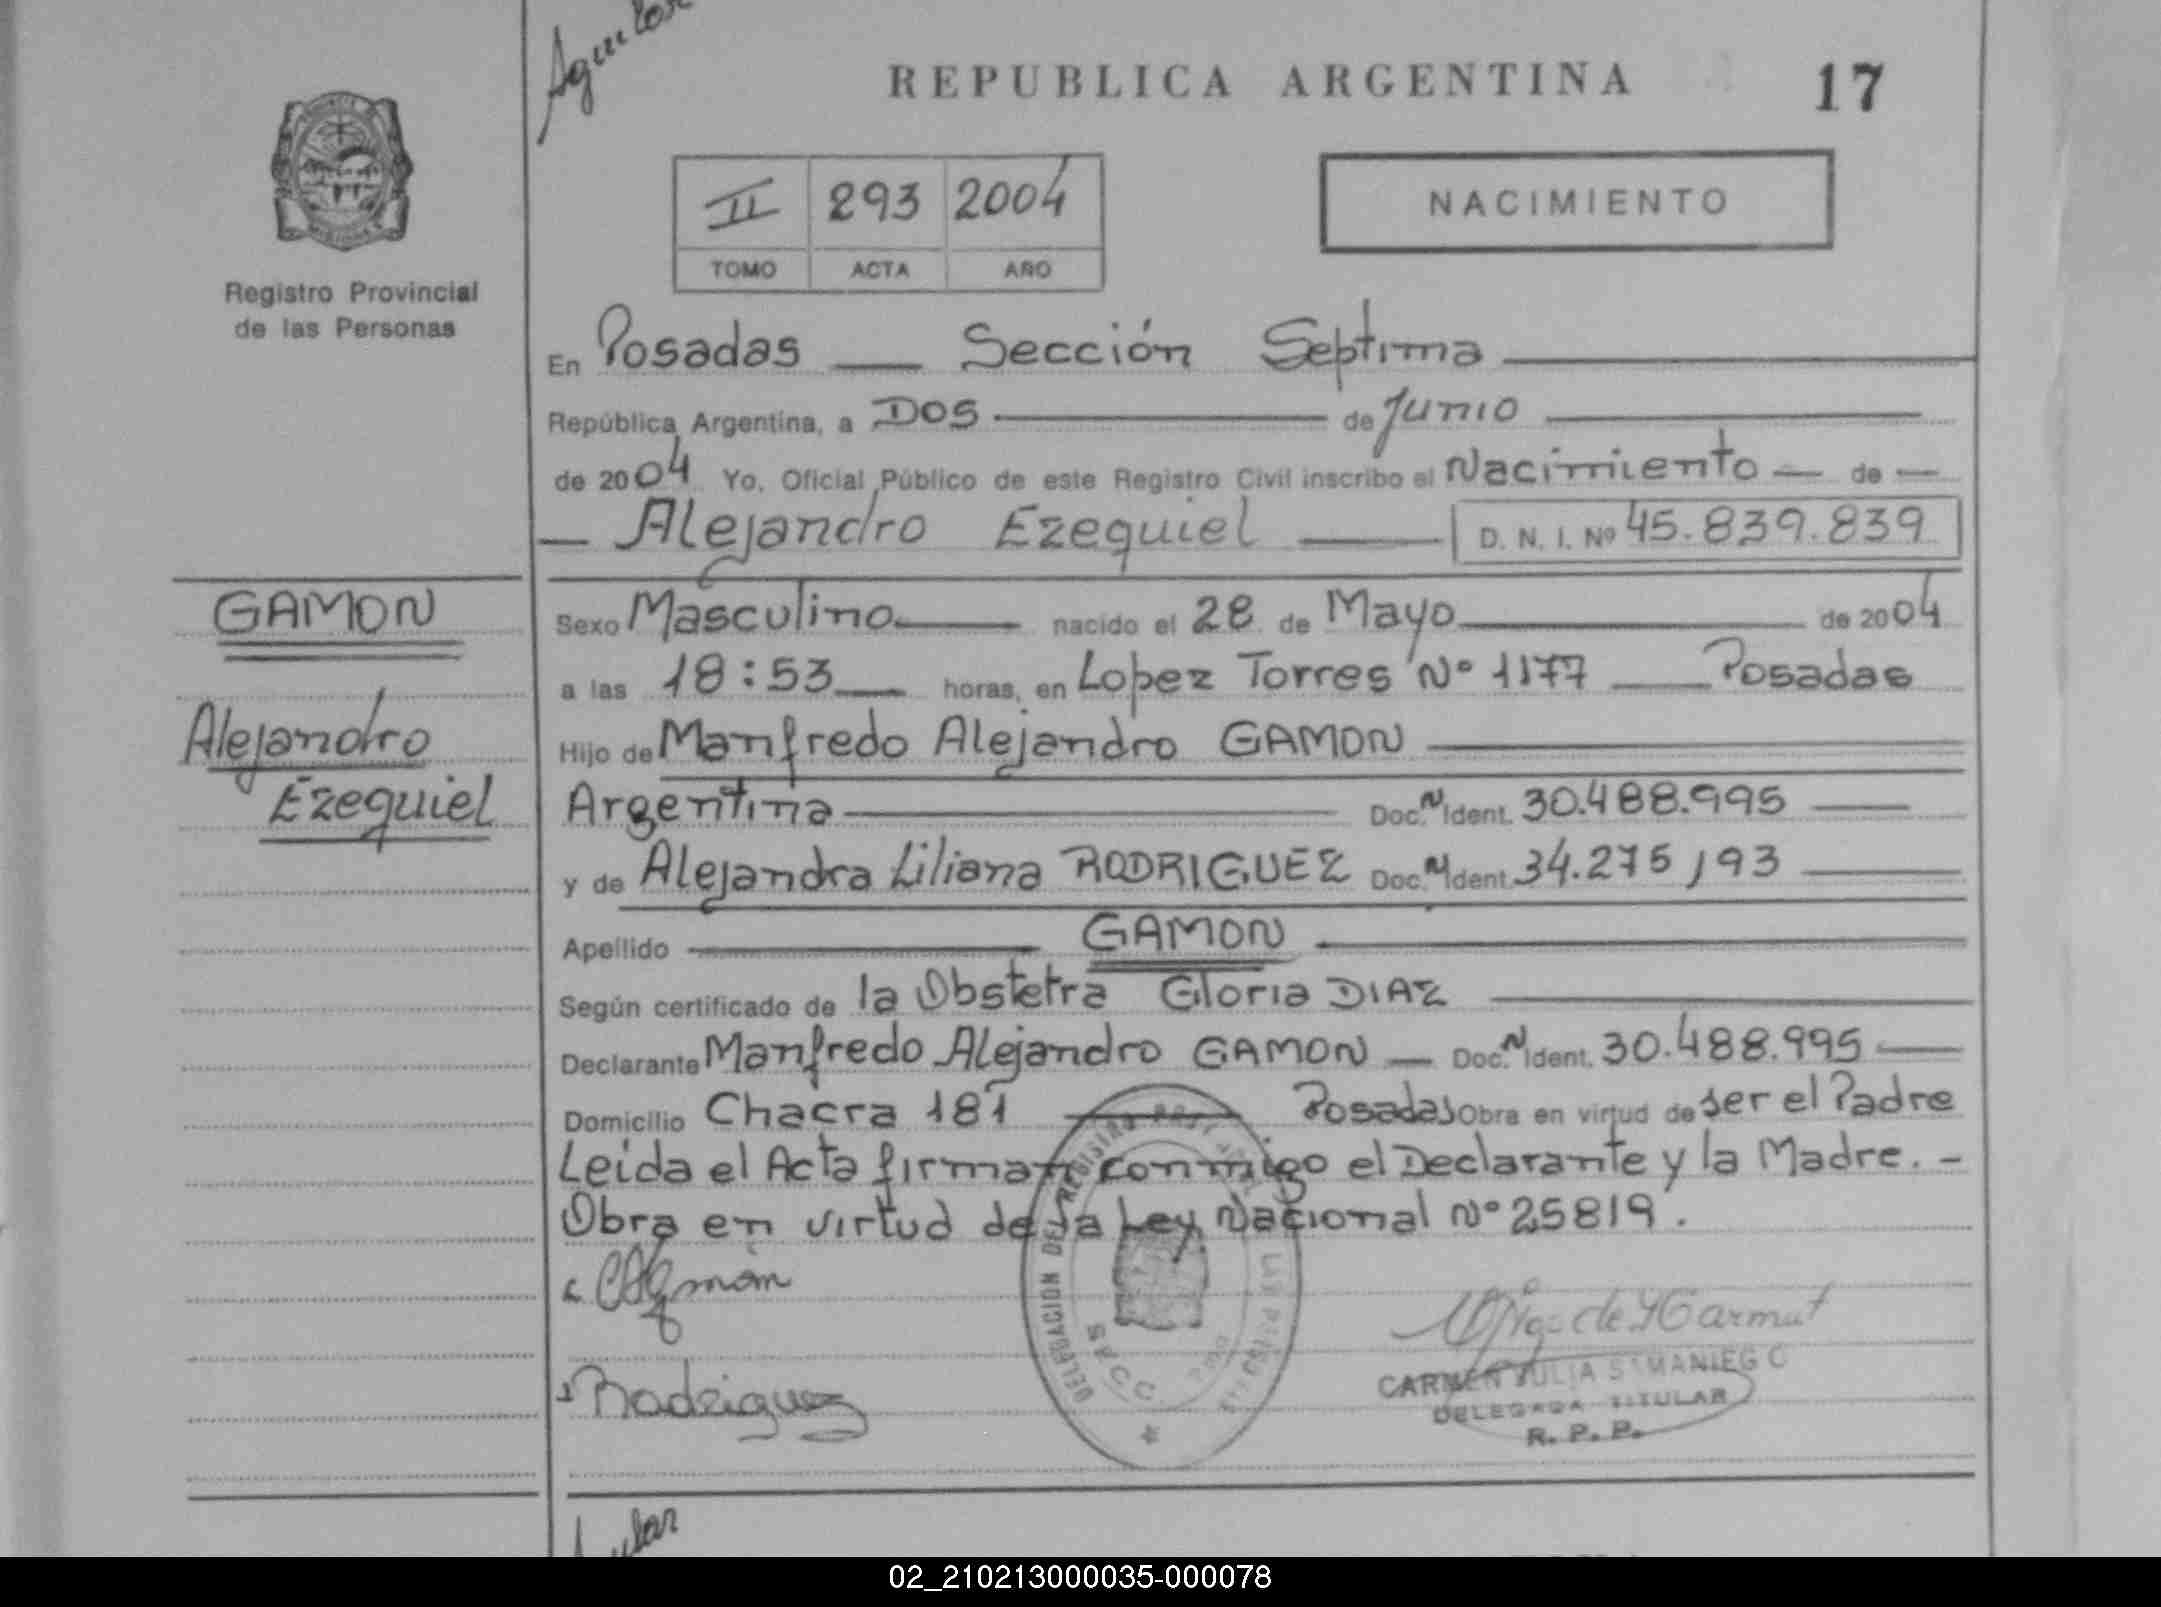 Aguilar
REPUBLICA ARGENTINA 17
II 293 2004
TOMO ACTA AÑO
NACIMIENTO
Registro Provincial
de las Personas
En Posadas — Sección Septima
República Argentina, a Dos de Junio
de 2004 Yo, Oficial Público de este Registro Civil inscribo el Nacimiento — de —
— Alejandro Ezequiel — D. N. I. Nº 45.839.839
GAMON
Alejandro
Ezequiel
Sexo Masculino nacido el 28 de Mayo de 2004
a las 18:53 horas, en Lopez Torres Nº 1177 — Posadas
Hijo de Manfredo Alejandro GAMON
Argentina Doc. N Ident. 30.488.995
y de Alejandra Liliana RODRIGUEZ Doc. N Ident. 34.275,193
Apellido GAMON
Según certificado de la Obstetra Gloria DIAZ
Declarante Manfredo Alejandro GAMON — Doc. N Ident. 30.488.995
Domicilio Chacra 181 — Posadas Obra en virtud de ser el Padre
Leida el Acta firman conmigo el Declarante y la Madre. -
Obra en virtud de la Ley Nacional Nº 25819.
DELEGACION DEL REGISTRO LAS PERSONAS
SECC
Rodriguez
CARMEN JULIA SAMANIEGO
DELEGADA TITULAR
R. P. P.
02_210213000035-000078